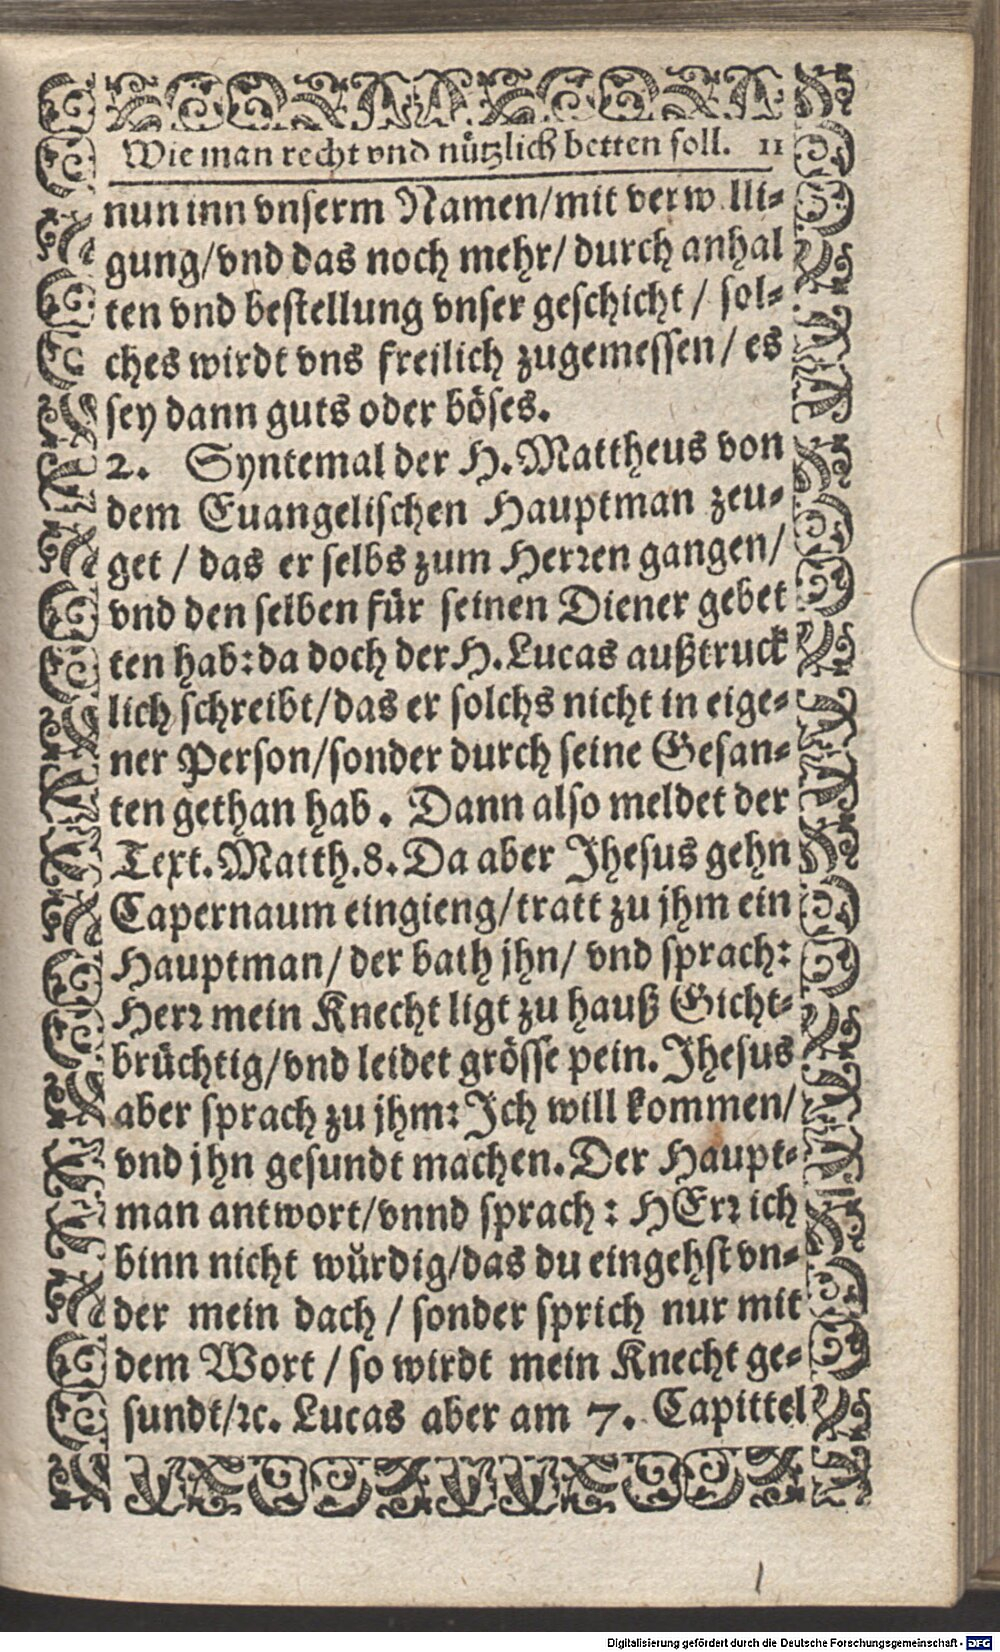 Wie man recht vnd nützlich betten soll. 11
nun inn vnserm Namen/mit verw lli-
gung/vnd das noch mehr/ durch anhal
ten vnd bestellung vnser geschicht / sol-
ches wirdt vns freilich zugemessen/ es
sey dann guts oder böses.
2. Syntemal der H. Mattheus von
dem Euangelischen Hauptman zeu-
get / das er selbs zum Herren gangen/
vnd den selben für seinen Diener gebet
ten hab: da doch der H. Lucas außtruck
lich schreibt/das er solchs nicht in eige-
ner Person/sonder durch seine Gesan-
ten gethan hab. Dann also meldet der
Text. Matth. 8. Da aber Jhesus gehn
Capernaum eingieng/tratt zu jhm ein
Hauptman/ der bath jhn/ vnd sprach:
Herr mein Knecht ligt zu hauß Gicht-
brüchtig/vnd leidet grösse pein. Jhesus
aber sprach zu jhm: Ich will kommen/
vnd jhn gesundt machen. Der Haupt-
man antwort/vnnd sprach: HErr ich
binn nicht wůrdig/das du eingehst vn-
der mein dach / sonder sprich nur mit
dem Wort / so wirdt mein Knecht ge-
sundt/ꝛc. Lucas aber am 7. Capittel
Digitalisierung gefördert durch die Deutsche Forschungsgemeinschaft - DFG